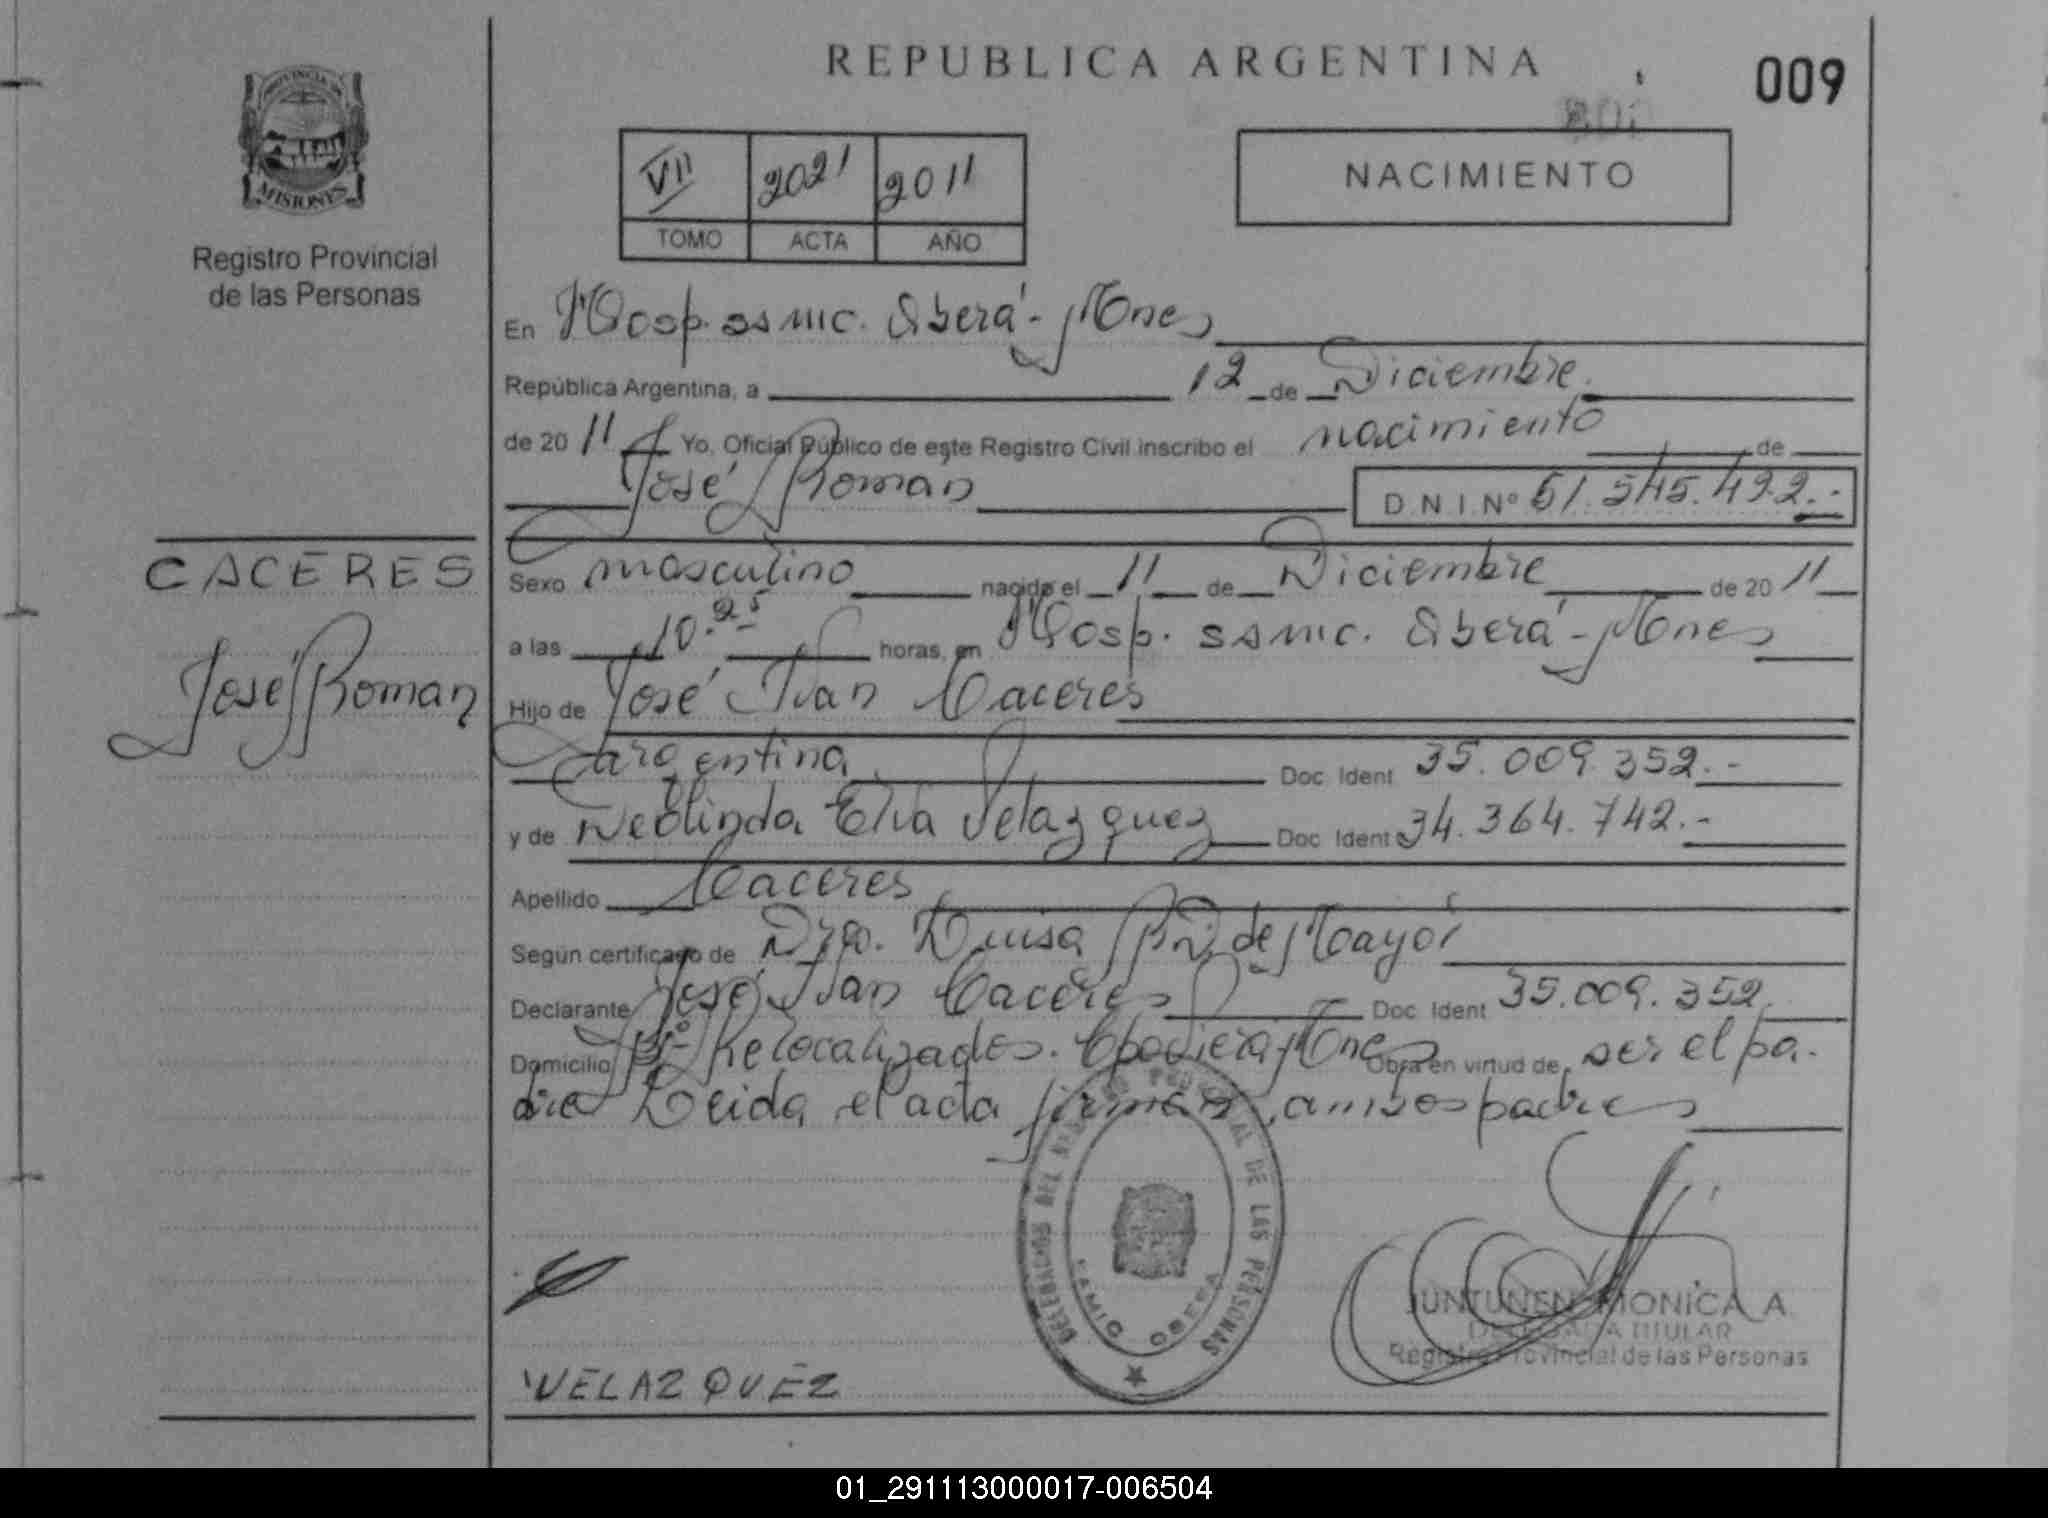 REPUBLICA ARGENTINA
009
PROVINCIA DE
MISIONES
Registro Provincial
de las Personas
VII 2021 2011
TOMO ACTA AÑO
NACIMIENTO
En Hosp. ssmic. Oberá - Mnes
República Argentina, a 12 de Diciembre
de 20 11 Yo, Oficial Público de este Registro Civil inscribo el nacimiento de
José Roman D.N.I.Nº 51.545.492.-
CACERES
José Roman
Sexo masculino nacido el 11 de Diciembre de 20 11
a las 10.25 horas, en Hosp. ssmic. Oberá - Mnes
Hijo de José Ivan Caceres
argentina Doc. Ident 35.009.352.-
y de Neolinda Elva Velazquez Doc. Ident 34.364.742.-
Apellido Caceres
Según certificado de Dra. Luisa de Mayol
Declarante José Ivan Caceres Doc. Ident 35.009.352
Domicilio Bº Relocalizados. Mnes Obra en virtud de ser el pa-
dre Leida el acta firman ambos padres
DELEGACION DEL REGISTRO PROVINCIAL DE LAS PERSONAS
SAMIC OBERA
JUNTUNEN MONICA A.
DELEGADA TITULAR
Registro Provincial de las Personas
VELAZQUEZ
01_291113000017-006504